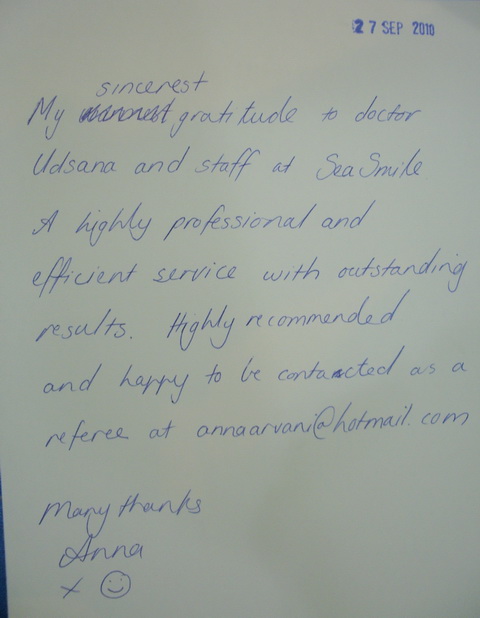 27 SEP 2010
sincerest
My gratitude to doctor
Udsana and staff at Sea Smile
A highly professional and
efficient service with outstanding
results. Highly recommended
and happy to be contacted as a
referee at annaarvani@hotmail.com
Many thanks
Anna
x ☺